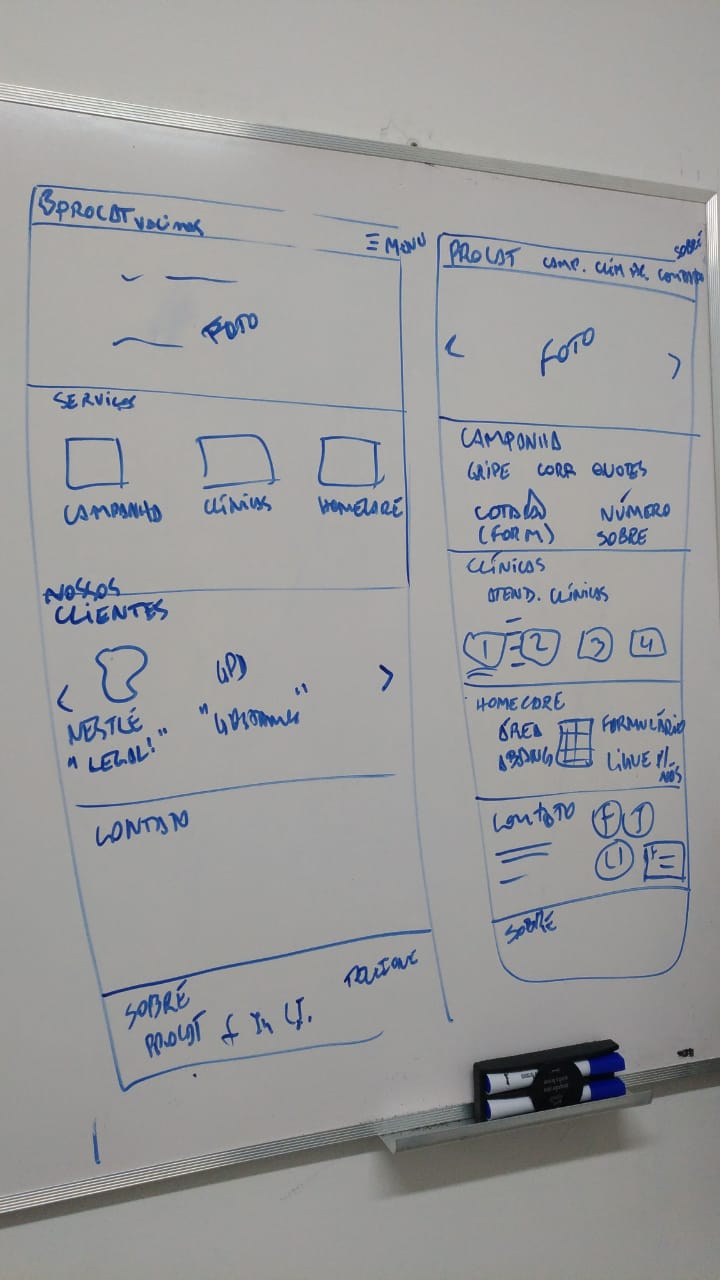 PROCAT VACINAS
≡ MENU
FOTO
SERVIÇOS
CAMPANHA CLÍNICAS HOMECARE
NOSSOS
CLIENTES
< >
NESTLÉ GPD
"LEGAL!"
CONTATO
SOBRE
PROCAT f In LI.
TELEFONE
SOBRE
PROCAT CAMP. CLIN HC. CONTATO
< FOTO >
CAMPANHA
GRIPE CORP QUOTES
COTAÇÃO NÚMERO
(FORM) SOBRE
CLÍNICAS
ATEND. CLÍNICAS
1 2 3 4
HOMECARE
ÁREA FORMULÁRIO
ABRANG LIGUE P/
NÓS
CONTATO F I
LI F
SOBRE